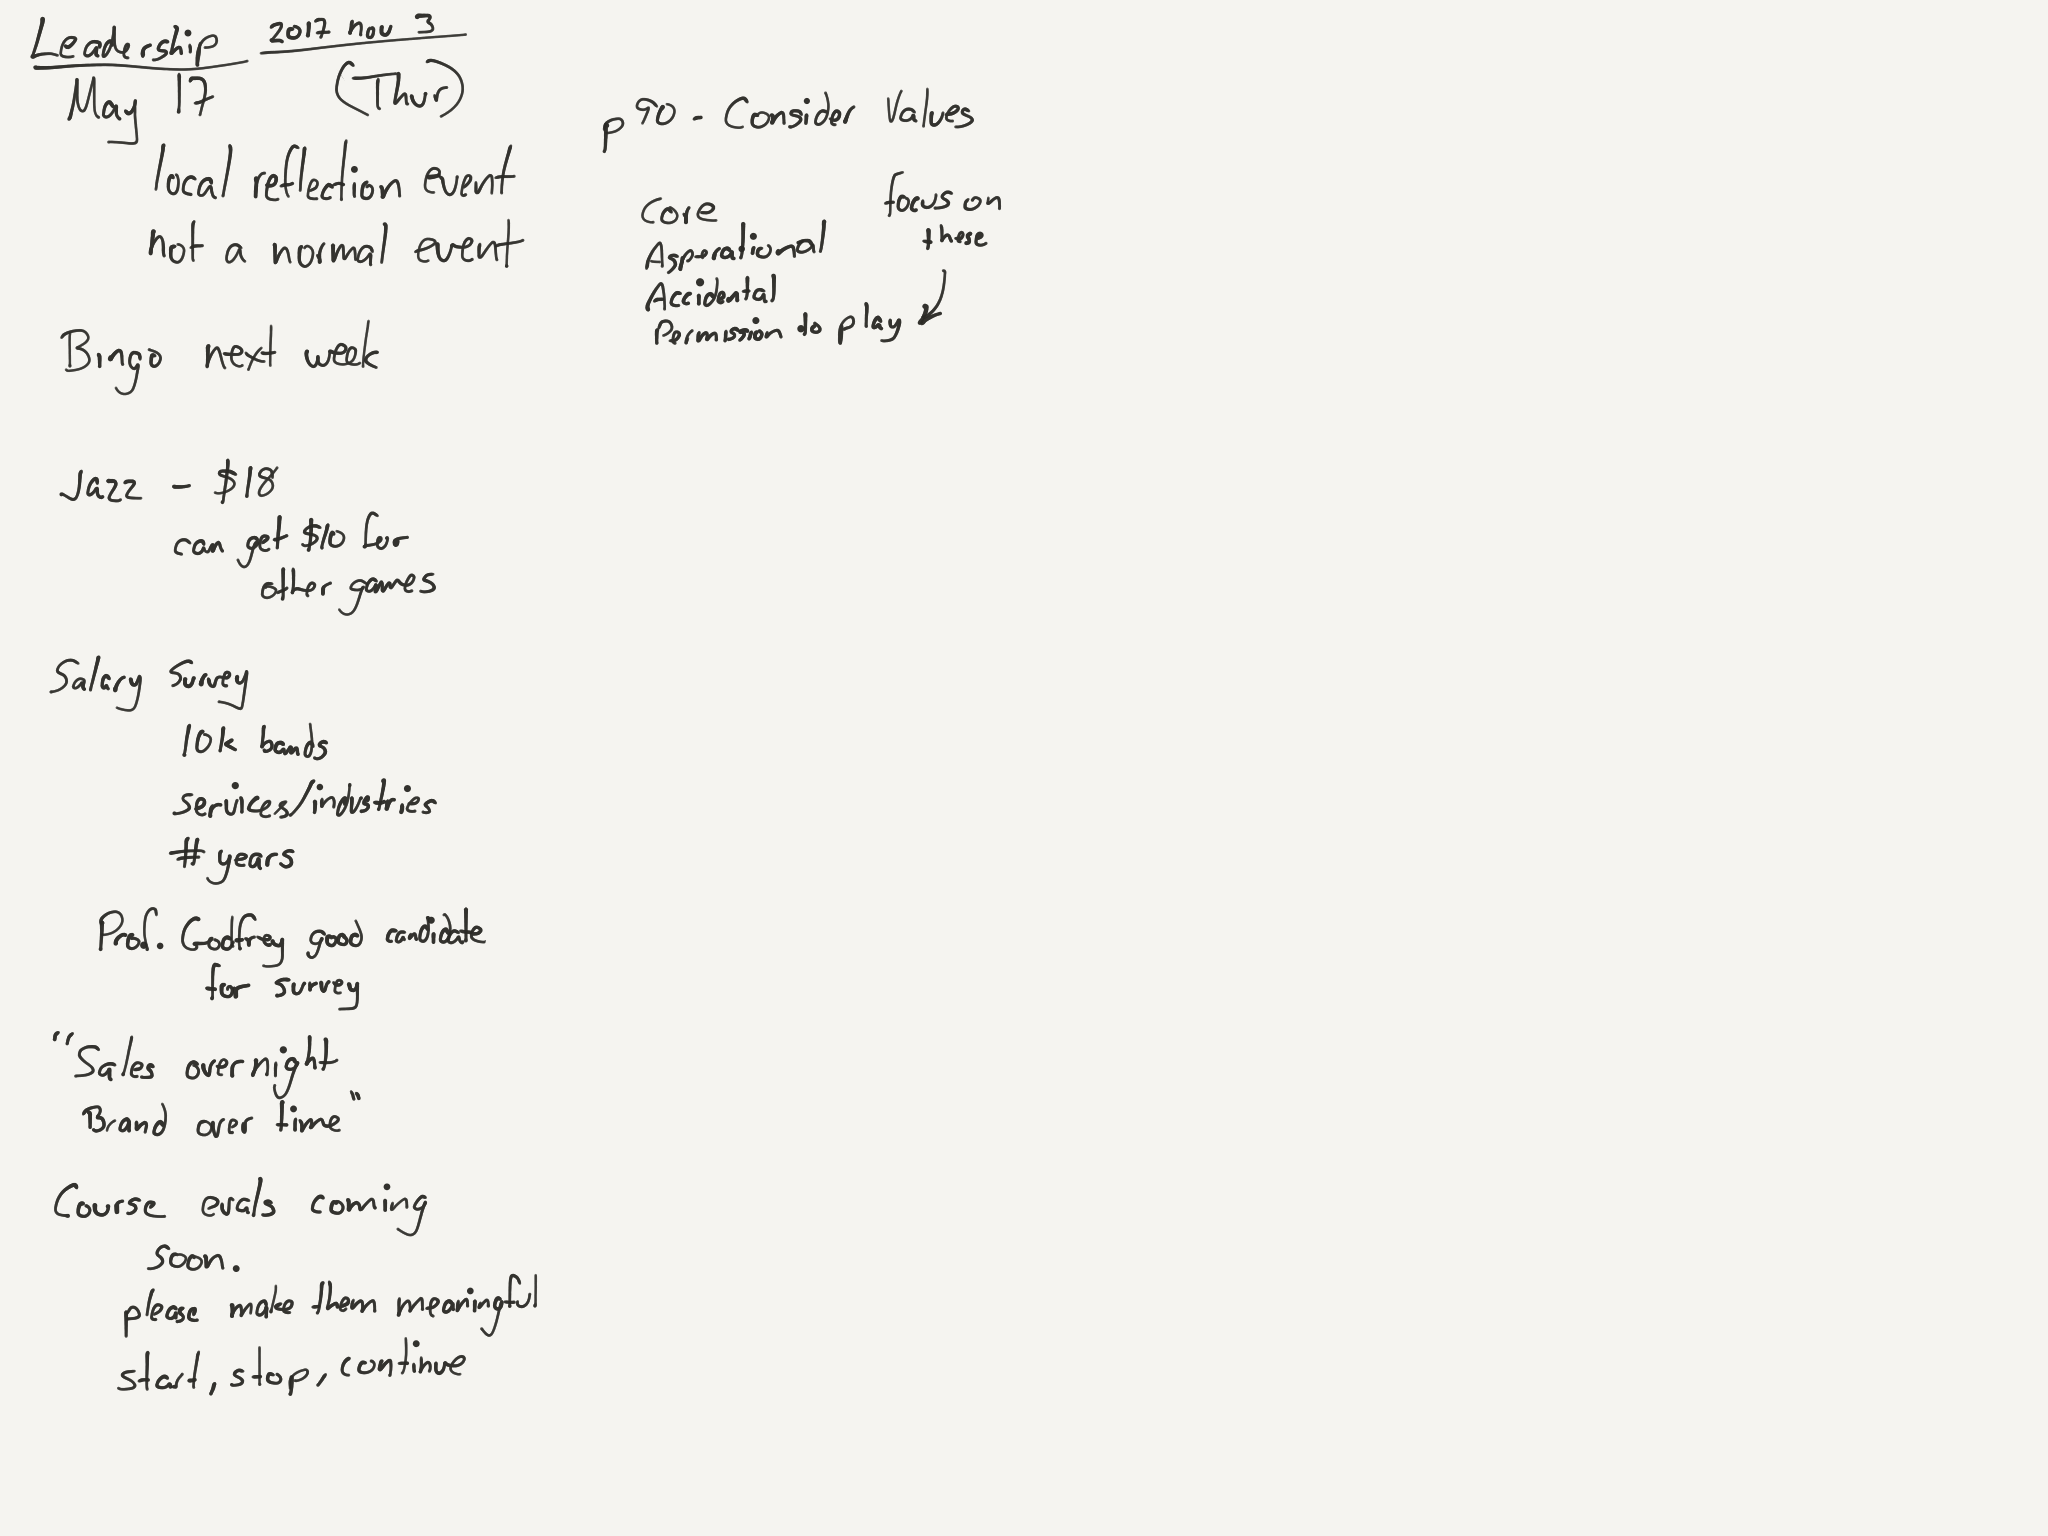 Leadership 2017 nov 3
May 17 (Thur)
local reflection event
not a normal event
Bingo next week
Jazz - $18
can get $10 for
other games
Salary Survey
10k bands
services/industries
# years
Prof. Godfrey good candidate
for survey
"Sales overnight
Brand over time"
Course evals coming
soon.
please make them meaningful
start, stop, continue
p 90 - Consider Values
Core
Asperational
Accidental
Permission to play
focus on
these